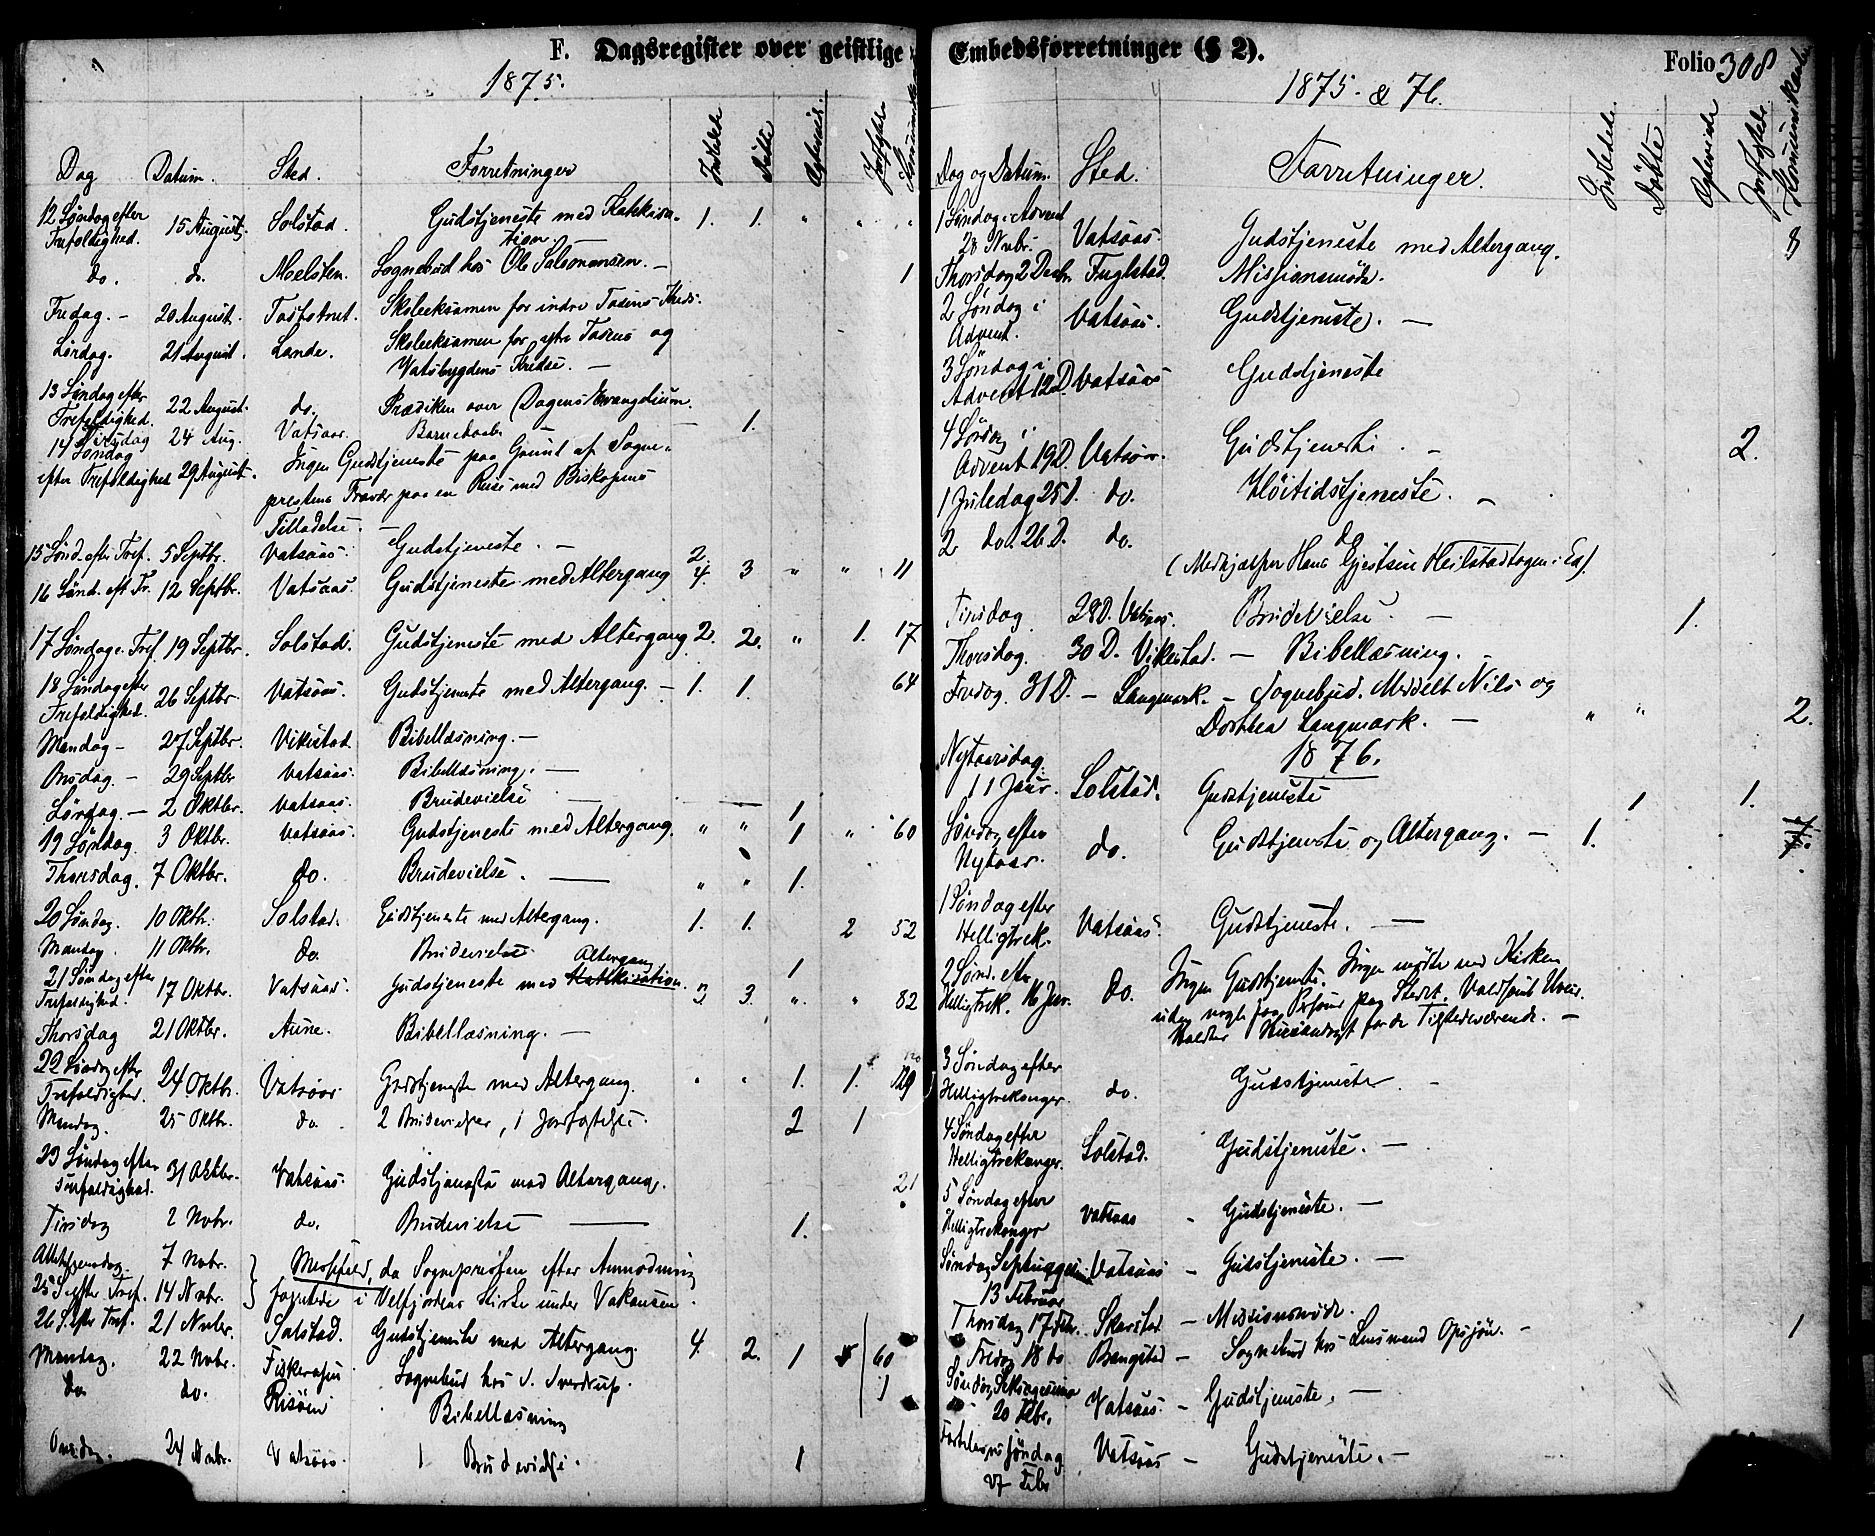 F. Dagsregister over geistlige
1875.
Dag Datum. Sted. Forretninger Indledede Døbte Jordfæstede Kommunikanter
12 Søndag efter Trefoldighed. 15 August. Solstad. Gudstjeneste med Katekisa- 1. 1. " " "
tion
do. do. Moelsten. Sognebud hos Ole Salomonsen. — 1
Fredag. — 20 August. Skoleeksamen for indre Tosens Kreds.
Lørdag. 21 August. Lande. Skoleeksamen for ytre Tosens og
Vatsbygdens Kredse. —
13 Søndag efter Trefoldighed. 22 August. do. Prædiken over Dagens Evangelium.
Tirsdag 24 Aug. Vatsaas. Barnedaab. — 1.
14 Søndag
efter Trefoldighed 29 August. Ingen Gudstjeneste paa Grund af Sogne-
prestens Fravær paa en Reise med Biskopens
Tilladelse. —
15 Sønd. efter Tref. 5 Septbr. Vatsaas. Gudstjeneste. — 2.
16 Sønd. eft Fr. 12 Septbr. Vatsaas. Gudstjeneste med Altergang 4. 3 " " 11
17 Søndag e. Tref. 19 Septbr. Solstad. Gudstjeneste med Altergang 2. 2. " 1. 17
18 Søndag efter Trefoldighed. 26 Septbr. Vatsaas. Gudstjeneste med Altergang. — 1. 1. 64
Mandag — 27 Septbr. Vikestad. Bibellæsning. —
Onsdag. — 29 Septbr Vatsaas. Bibellæsning. —
Lørdag. — 2 Oktbr. Vatsaas. Brudevielse — 1.
19 Søndag 3 Oktbr. Vatsaas. Gudstjeneste med Altergang. " " 1 " 60
Thorsdag. 7 Oktbr. do. Brudevielse. — " " 1.
20 Søndag. 10 Oktbr. Solstad. Gudstjeneste med Altergang. 1. 1. 2 52
Mandag. 11 Oktbr. do. Brudevielse 1
21 Søndag efter Trefoldighed. 17 Oktbr. Vatsaas. Gudstjeneste med Altergang Katekisation. 3 3. " " 82
Thorsdag 21 Oktbr. Aune. Bibellæsning. —
22 Søndag efter Trefoldighed. 24 Oktbr. Vatsaas. Gudstjeneste med Altergang. " " 1. 1.
Mandag. 25 Oktbr. do. 2 Brudevielser, 1 Jordfæstelse. 2 1
23 Søndag efter Trefoldighed. 31 Oktbr. Vatsaas. Gudstjeneste med Altergang. 21
Tirsdag 2 Nobr. do. Brudevielse — 1.
Allehelgensdag. 7 Nobr. Messefald, da Sognepresten efter Anmodning
25 S. efter Tref. 14 Nvbr. forrettede i Velfjordens Kirke under Vakansen.
26 S. efter Tref. 21 Nvbr. Solstad. Gudstjeneste med Altergang. 4. 2. 1 60
Mandag. 22 Nobr. Sognebud hos S. Sverdrup. 1
do. do. Risøen Bibellæsning
Onsdag. 24 Nvbr. Vatsaas. 1 Brudevielse. 1
Embedsforretninger (§ 2).
Folio 308
1875. & 76.
Dag og Datum. Sted. Forretninger. Indledede. Døbte Jordfæstede Kommunikanter
1 Søndag i Advent 28 Nvbr. Vatsaas. Gudstjeneste med Altergang. 8
Thorsdag 2 Decbr. Fuglstad. Missionsmøde.
2 Søndag i Advent. Vatsaas. Gudstjeneste. —
3 Søndag i Advent 12 D. Vatsaas Gudstjeneste
4 Søndag i Advent 19 D. Vatsaas. Gudstjeneste. — 2.
1 Juledag 25 D. do. Høitidstjeneste. —
2 do. 26 D. do. do
(Medhjælper Hans Gjertsen Heilstadtagen i Ed).
Tirsdag 28 D. Vatsaas. Brudevielse. — 1.
Thorsdag. 30 D. Vikestad. — Bibellæsning. —
Fredag. 31 D. — Langmark. — Sognebud. Meddelt Nils og
Dorthea Langmark. — " " 2.
1876.
Nytaarsdag 1 Janr. Solstad. Gudstjeneste 1 1.
Søndag efter Nytaar. do. Gudstjeneste og Altergang. — 1.
1 Søndag efter Helligtrek. Vatsaas. Gudstjeneste. —
2 Sønd. efter Helligtrek. 16 Jan. do. Ingen Gudstjeneste. Ingen mødte ved Kirken
uden nogle faa Personer paa Stedet. Veir.
for de Tilstedeværende. —
3 Søndag efter Helligtrekonger. do. Gudstjeneste. —
4 Søndag efter Helligtrekonger. Solstad. Gudstjeneste. —
5 Søndag efter Helligtrekonger Vatsaas — Gudstjeneste. —
Søndag Septuagesima 13 Februar Vatsaas — Gudstjeneste. —
Thorsdag 17 Febr. Skarstad — Missionsmøde.
Fredag 18 do Brangstad — Sognebud hos Lensmand Opsjøn. — 1
Søndag Seksagesima 20 Febr. Vatsaas. — Gudstjeneste. —
Fastelavns Søndag 27 Febr Vatsaas — Gudstjeneste. —